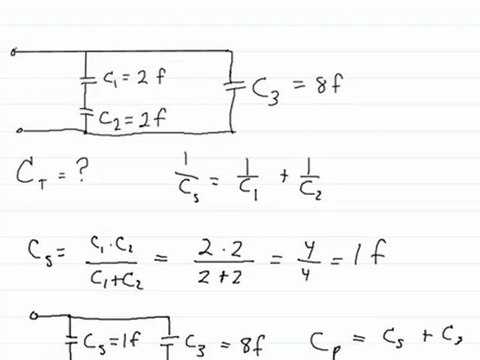 C₁ = 2 f
C₂ = 2f
C₃ = 8f
C_T = ?
1/Cₛ = 1/C₁ + 1/C₂
Cₛ = C₁·C₂/C₁+C₂ = 2·2/2+2 = 4/4 = 1 f
Cₛ = 1f
C₃ = 8f
Cₚ = Cₛ + C₃